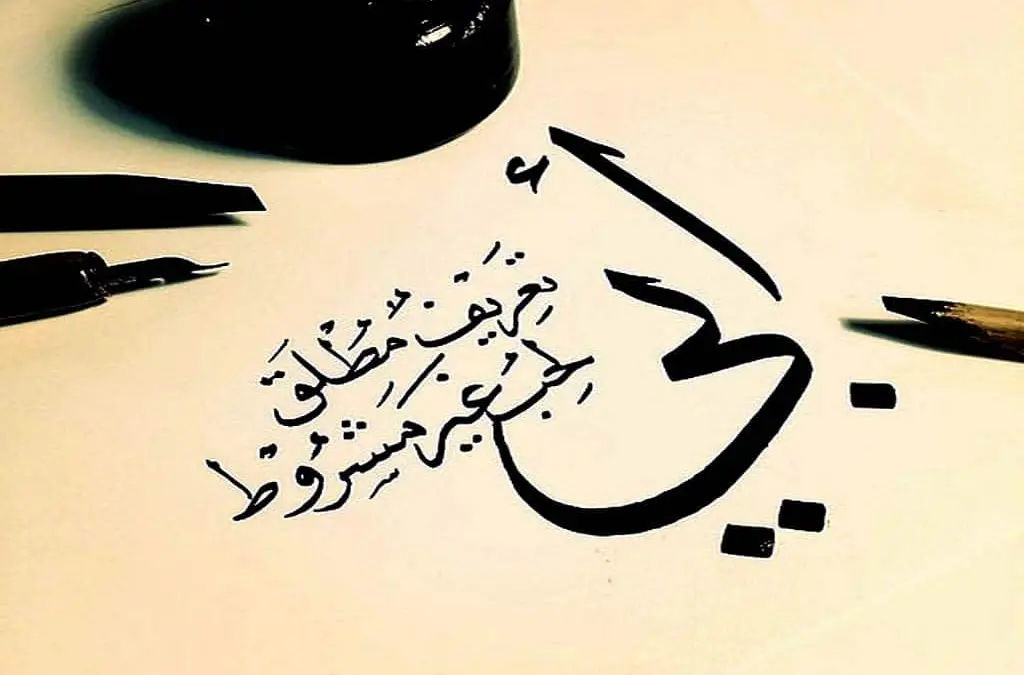 أبي
تَعرِيف مُطْلَق
لِحُب غَير مَشرُوط